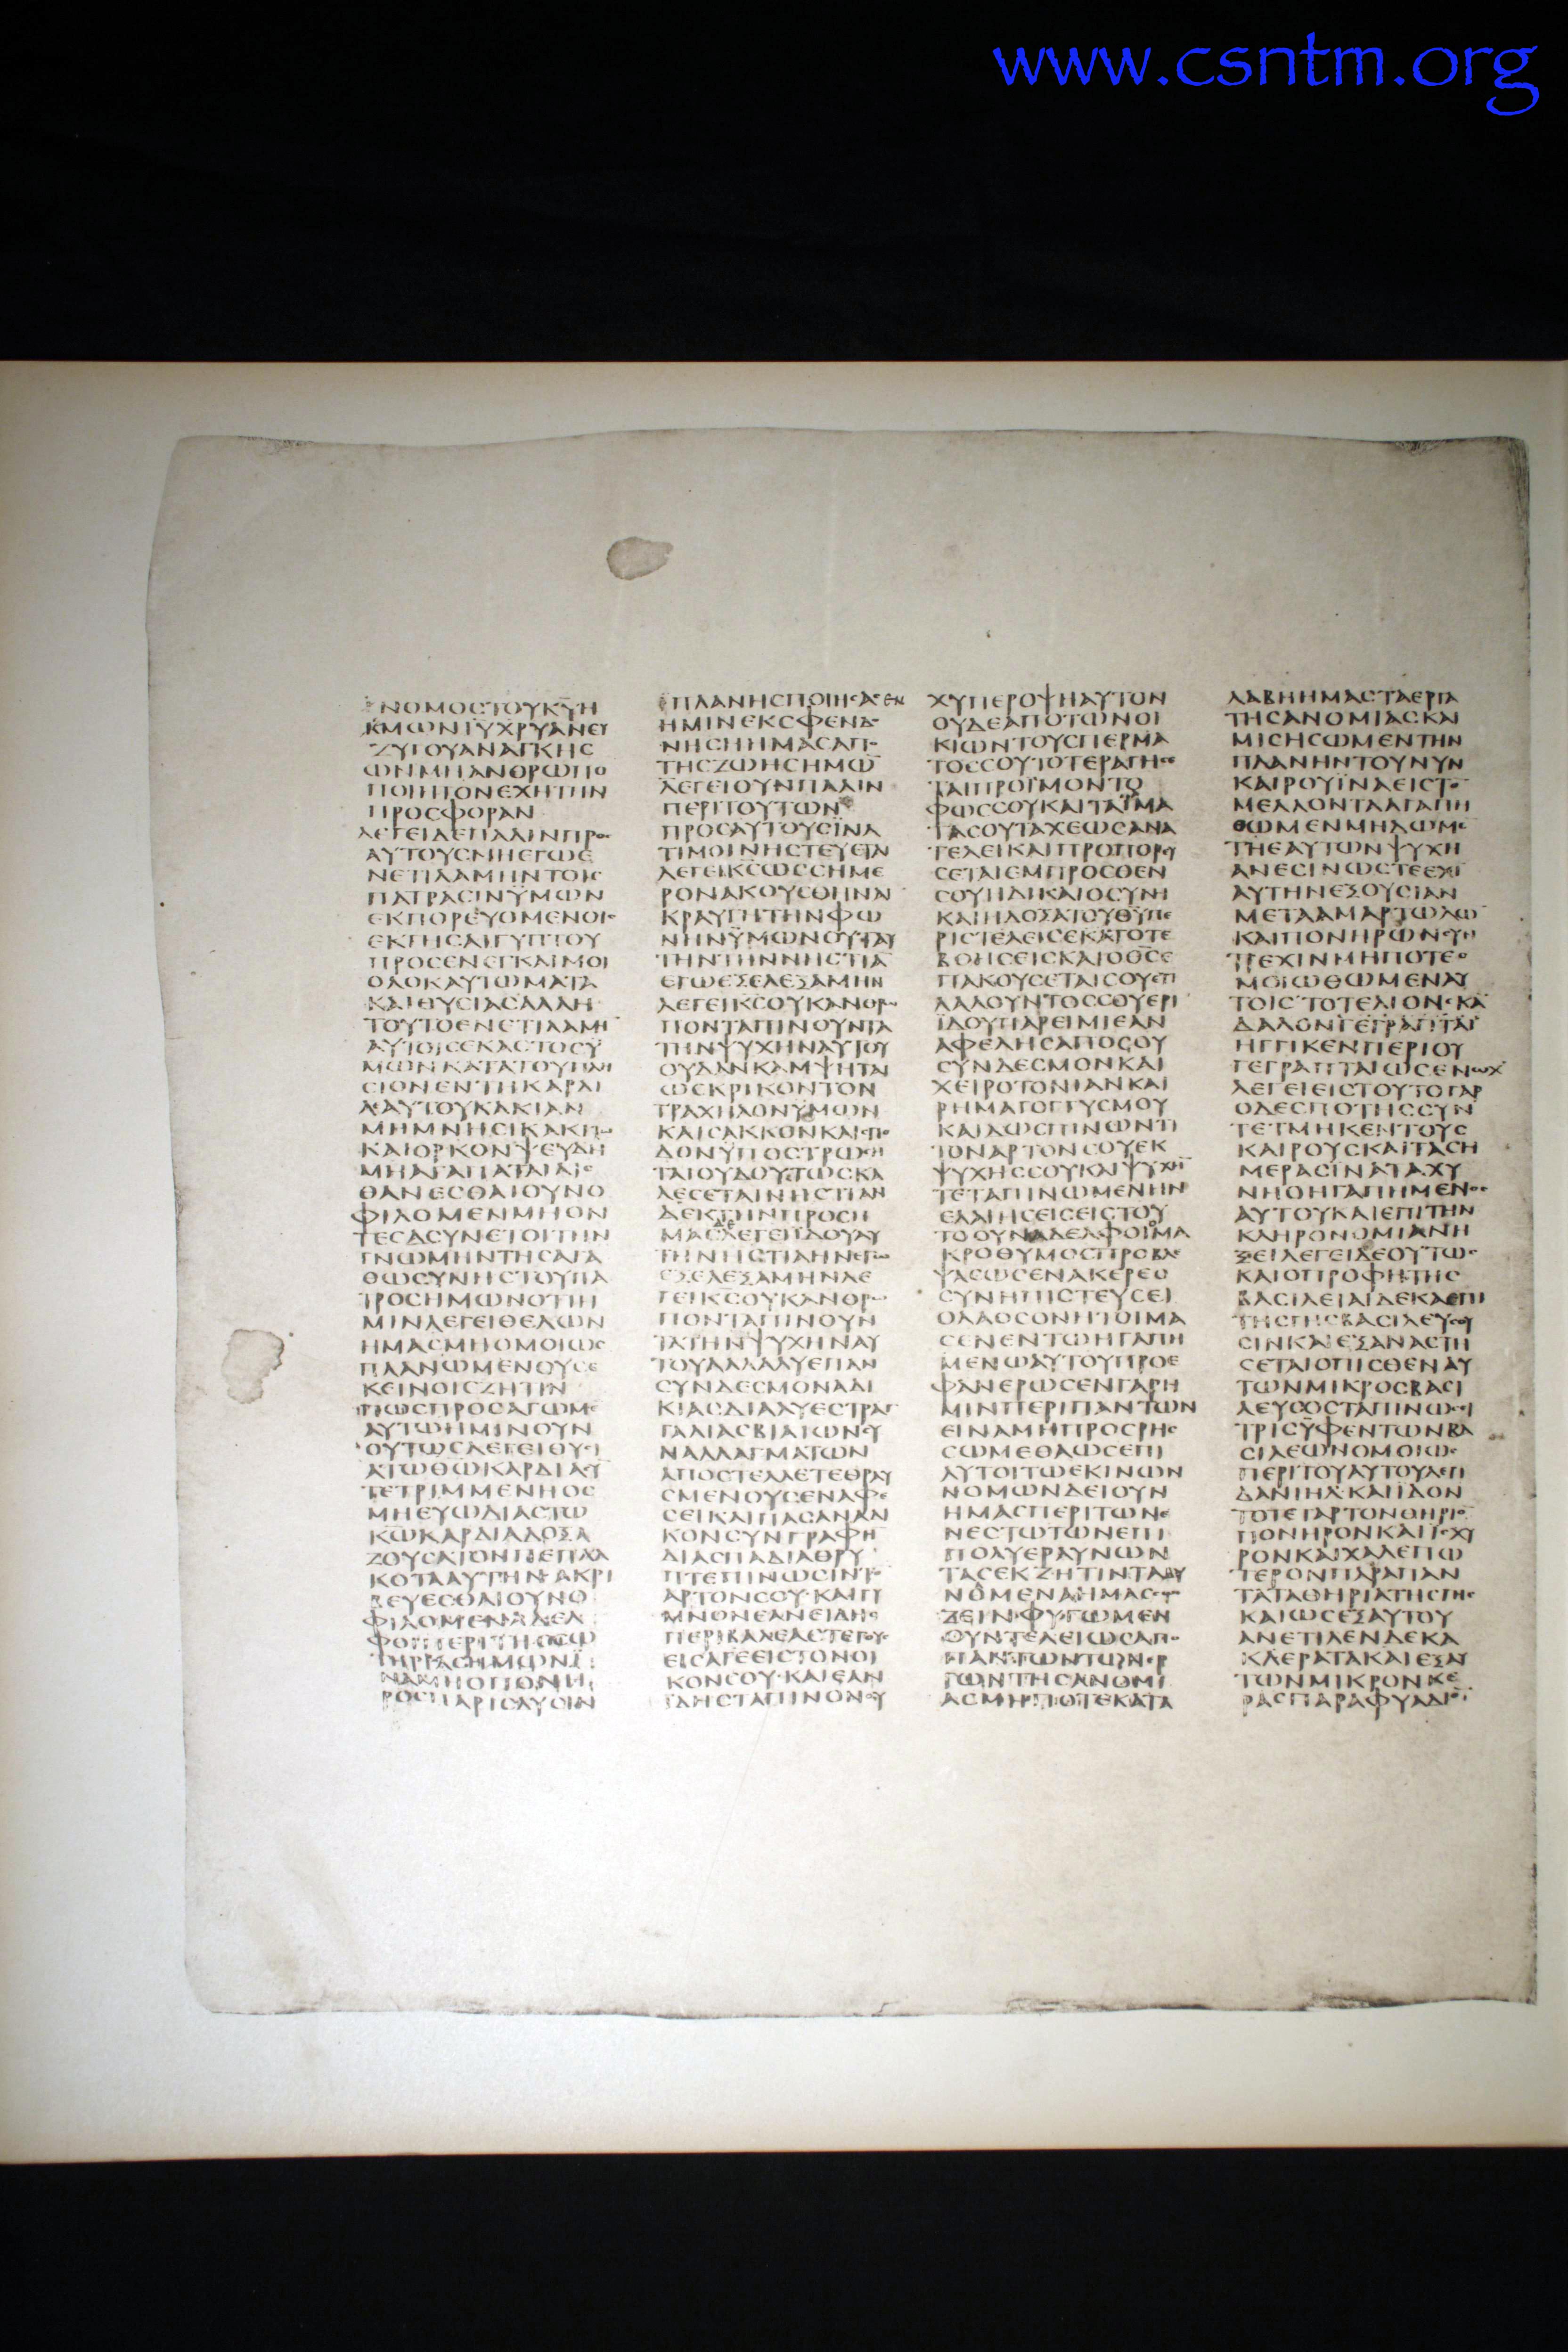 www.csntm.org
ΝΟΜΟСΤΟΥΚΥΗ
ΚΜΩΝΙΥΧΡΥΑΝΕΥ
ΖΥΓΟΥΑΝΑΓΚΗС
ΩΝΜΗΑΝΘΡΩΠΟ
ΠΟΙΗΤΟΝΕΧΗΤΗΝ
ΠΡΟСΦΟΡΑΝ
ΛΕΓΕΙΔΕΠΑΛΙΝΠΡΟС
ΑΥΤΟΥСΜΗΕΓΩΕ
ΝΕΤΙΛΑΜΗΝΤΟΙС
ΠΑΤΡΑСΙΝΫΜΩΝ
ΕΚΠΟΡΕΥΟΜΕΝΟΙС
ΕΚΓΗСΑΙΓΥΠΤΟΥ
ΠΡΟСΕΝΕΓΚΑΙΜΟΙ
ΟΛΟΚΑΥΤΩΜΑΤΑ
ΚΑΙΘΥСΙΑСΑΛΛΗ
ΤΟΥΤΟΕΝСΤΙΛΑΜΗ
ΑΥΤΟΙСЄΚΑСΤΟСΫ
ΜΩΝΚΑΤΑΤΟΥΠΛΗ
СΙΟΝΕΝΤΗΚΑΡΔΙ
ΑΑΥΤΟΥΚΑΚΙΑΝ
ΜΗΜΝΗСΙΚΑΚΙΤΩ
ΚΑΙΟΡΚΟΝΨΕΥΔΗ
ΜΗΑΓΑΠΑΤΑΙΑΙС
ΘΑΝΕСΘΑΙΟΥΝΟ
ΦΙΛΟΜΕΝΜΗΟΝ
ΤΕСΑСΥΝΕΤΟΙΤΗΝ
ΓΝΩΜΗΝΤΗСΑΓΑ
ΘΩСΥΝΗСΤΟΥΠΑ
ΤΡΟСΗΜΩΝΟΤΙΗ
ΜΙΝΛΕΓΕΙΘΕΛΩΝ
ΗΜΑСΜΗΟΜΟΙΩС
ΠΛΑΝΩΜΕΝΟΥСΕ
ΚΕΙΝΟΙСΖΗΤΙΝ
ΠΩСΠΡΟСΑΓΩΜΕ
ΑΥΤΩΗΜΙΝΟΥΝ
ΟΥΤΩСΛΕΓΕΙΘΥСΙ
ΑΤΩΘΩΚΑΡΔΙΑСΥ
ΤΕΤΡΙΜΜΕΝΗΟС
ΜΗΕΥΩΔΙΑСΤΩ
ΚΩΚΑΡΔΙΑΔΟΞΑ
ΖΟΥСΑΤΟΝΠΕΠΛΑ
ΚΟΤΑΑΥΤΗΝΑΚΡΙ
ΒΕΥΕСΘΑΙΟΥΝΟ
ΦΙΛΟΜΕΝΑΔΕΛ
ΦΟΙΠΕΡΙΤΗССΩ
ΤΗΡΙΑСΗΜΩΝΪ
ΝΑΜΗΟΠΟΝΗ
ΡΟСΠΑΡΙСΔΥСΙΝ
ΠΛΑΝΗСΠΟΙΗСΑСΕΝ
ΗΜΙΝΕΚСΦΕΝΔΟ
ΝΗСΗΗΜΑСΑΠΟ
ΤΗСΖΩΗСΗΜΩ
ΛΕΓΕΙΟΥΝΠΑΛΙΝ
ΠΕΡΙΤΟΥΤΩΝ
ΠΡΟСΑΥΤΟΥСΪΝΑ
ΤΙΜΟΙΝΗСΤΕΥΕΤΑΙ
ΛΕΓΕΙΚСΩССΗΜΕ
ΡΟΝΑΚΟΥСΘΗΝΑΙ
ΚΡΑΥΓΗΤΗΝΦΩ
ΝΗΝΫΜΩΝΟΥΤΑΥ
ΤΗΝΤΗΝΝΗСΤΙΑ
ΕΓΩΕΞΕΛΕΞΑΜΗΝ
ΛΕΓΕΙΚСΟΥΚΑΝΟΡω
ΠΟΝΤΑΠΙΝΟΥΝΤΑ
ΤΗΝΨΥΧΗΝΑΥΤΟΥ
ΟΥΔΑΝΚΑΜΨΗΤΑΙ
ΩСΚΡΙΚΟΝΤΟΝ
ΤΡΑΧΗΛΟΝΫΜΩΝ
ΚΑΙСΑΚΚΟΝΚΑΙСΠΟ
ΔΟΝΫΠΟСΤΡΩСΗ
ΤΑΙΟΥΔΟΥΤΩСΚΑ
ΛΕСΕΤΑΙΝΗСΤΙΑΝ
ΔΕΚΤΗΝΠΡΟСΗ
ΜΑСΔΕΛΕΓΕΙΪΔΟΥΑΥ
ΤΗΝΗСΤΙΑΗΝΕΓΩ
ΕΞΕΛΕΞΑΜΗΝΛΕ
ΓΕΙΚСΟΥΚΑΝΟΡω
ΠΟΝΤΑΠΙΝΟΥΝ
ΤΑΤΗΝΨΥΧΗΝΑΥ
ΤΟΥΑΛΛΑΛΥΕΠΑΝ
СΥΝΔΕСΜΟΝΑΔΙ
ΚΙΑСΔΙΑΛΥΕСΤΡΑΓ
ΓΑΛΙΑСΒΙΑΙΩΝСΥ
ΝΑΛΛΑΓΜΑΤΩΝ
ΑΠΟСΤΕΛΛΕΤΕΘΡΑΥ
СΜΕΝΟΥСΕΝΑΦΕ
СΕΙΚΑΙΠΑСΑΝΑΔΙ
ΚΟΝСΥΝΓΡΑΦΗ
ΔΙΑСΠΑΔΙΑΘΡΥ
ΠΤΕΠΙΝΩСΙΝΤΟ
ΑΡΤΟΝСΟΥΚΑΙΓΥ
ΜΝΟΝΕΑΝΕΙΔΗС
ΠΕΡΙΒΑΛΕΑСΤΕΓΟΥС
ΕΙСΑΓΕΕΙСΤΟΝΟΙ
ΚΟΝСΟΥΚΑΙΕΑΝ
ΪΔΗСΤΑΠΙΝΟΝΟΥ
ΧΥΠΕΡΟΨΗΑΥΤΟΝ
ΟΥΔΕΑΠΟΤΩΝΟΙ
ΚΙΩΝΤΟΥСΠΕΡΜΑ
ΤΟССΟΥΤΟΤΕΡΑΓΗСΕ
ΤΑΙΠΡΟΪΜΟΝΤΟ
ΦΩССΟΥΚΑΙΤΑΪΜΑ
ΤΑСΟΥΤΑΧΕΩСΑΝΑ
ΤΕΛΕΙΚΑΙΠΡΟΠΟΡΕΥ
СΕΤΑΙΕΜΠΡΟСΘΕΝ
СΟΥΗΔΙΚΑΙΟСΥΝΗ
ΚΑΙΗΔΟΞΑΤΟΥΘΥΠΕ
ΡΙСΤΕΛΕΙСΕΚΑΙΤΟΤΕ
ΒΟΗСΕΙСΚΑΙΟΘСΕ
ΠΑΚΟΥСΕΤΑΙСΟΥΕΤΙ
ΛΑΛΟΥΝΤΟССΟΥΕΡΙ
ΪΔΟΥΠΑΡΕΙΜΙΕΑΝ
ΑΦΕΛΗСΑΠΟСΟΥ
СΥΝΔΕСΜΟΝΚΑΙ
ΧΕΙΡΟΤΟΝΙΑΝΚΑΙ
ΡΗΜΑΓΟΓΓΥСΜΟΥ
ΚΑΙΔΩСΠΙΝΩΝΤΙ
ΤΟΝΑΡΤΟΝСΟΥΕΚ
ΨΥΧΗССΟΥΚΑΙΨΥΧΗ
ΤΕΤΑΠΙΝΩΜΕΝΗΝ
ΕΛΑΙΗСΕΙСΕΙСΤΟΥ
ΤΟΟΥΝΑΔΕΛΦΟΙΜΑ
ΚΡΟΘΥΜΟСΠΡΟΒΛΕ
ΨΑСΩСΕΝΑΚΕΡΕΟ
СΥΝΗΠΙСΤΕΥСΕΙ
ΟΛΑΟСΟΝΗΤΟΙΜΑ
СΕΝΕΝΤΩΗΓΑΠΗ
ΜΕΝΩΑΥΤΟΥΠΡΟΕ
ΦΑΝΕΡΩСΕΝΓΑΡΗ
ΜΙΝΠΕΡΙΠΑΝΤΩΝ
ΕΙΝΑΜΗΠΡΟСΡΗС
СΩΜΕΘΑΩСΕΠΙ
ΑΥΤΟΙΤΩΕΚΙΝΩΝ
ΝΟΜΩΝΔΕΙΟΥΝ
ΗΜΑСΠΕΡΙΤΩΝΕ
ΝΕСΤΩΤΩΝΕΠΙ
ΠΟΛΥΕΡΑΥΝΩΝ
ΤΑСΕΚΖΗΤΙΝΤΑΔΥ
ΝΟΜΕΝΑΗΜΑССΩ
ΖΕΙΝΦΥΓΩΜΕΝ
ΟΥΝΤΕΛΕΙΩСΑΠΟ
ΠΑΝΤΩΝΤΩΝΕΡ
ΓΩΝΤΗСΑΝΟΜΙ
ΑСΜΗΠΟΤΕΚΑΤΑ
ΛΑΒΗΗΜΑСΤΑΕΡΓΑ
ΤΗСΑΝΟΜΙΑСΚΑΙ
ΜΙСΗСΩΜΕΝΤΗΝ
ΠΛΑΝΗΝΤΟΥΝΥΝ
ΚΑΙΡΟΥΪΝΑΕΙСΤΟ
ΜΕΛΛΟΝΤΑΑΓΑΠΗ
ΘΩΜΕΝΜΗΔΩΜΕ
ΤΗΕΑΥΤΩΝΨΥΧΗ
ΑΝΕСΙΝΩСΤΕΕΧΙ
ΑΥΤΗΝΕΞΟΥСΙΑΝ
ΜΕΤΑΑΜΑΡΤΩΛΩ
ΚΑΙΠΟΝΗΡΩΝСΥΝ
ΤΡΕΧΙΝΜΗΠΟΤΕΟ
ΜΟΙΩΘΩΜΕΝΑΥ
ΤΟΙСΤΟΤΕΛΙΟΝСΚΑ
ΔΑΛΟΝΓΕΓΡΑΠΤΑΙ
ΗΓΓΙΚΕΝΠΕΡΙΟΥ
ΓΕΓΡΑΠΤΑΙΩСΕΝωΧ
ΛΕΓΕΙΕΙСΤΟΥΤΟΓΑΡ
ΟΔΕСΠΟΤΗССΥΝ
ΤΕΤΜΗΚΕΝΤΟΥС
ΚΑΙΡΟΥСΚΑΙΤΑСΗ
ΜΕΡΑСΪΝΑΤΑΧΥ
ΝΗΟΗΓΑΠΗΜΕΝΟС
ΑΥΤΟΥΚΑΙΕΠΙΤΗΝ
ΚΛΗΡΟΝΟΜΙΑΝΗ
ΞΕΙΛΕΓΕΙΔΕΟΥΤΩС
ΚΑΙΟΠΡΟΦΗΤΗС
ΒΑСΙΛΕΙΑΙΔΕΚΑΕΠΙ
ΤΗСΓΗСΒΑСΙΛΕΥСΟΥ
СΙΝΚΑΙΕΞΑΝΑСΤΗ
СΕΤΑΙΟΠΙСΘΕΝΑΥ
ΤΩΝΜΙΚΡΟСΒΑСΙ
ΛΕΥСΟСΤΑΠΙΝΩСΙ
ΤΡΙСΫΦΕΝΤΩΝΒΑ
СΙΛΕΩΝΟΜΟΙΩС
ΠΕΡΙΤΟΥΑΥΤΟΥΛΕΓΙ
ΔΑΝΙΗΛΚΑΙΪΔΟΝ
ΤΟΤΕΓΑΡΤΟΝΘΗΡΙΟ
ΠΟΝΗΡΟΝΚΑΙΪСΧΥ
ΡΟΝΚΑΙΧΑΛΕΠΩ
ΤΕΡΟΝΠΑΡΑΠΑΝ
ΤΑΤΑΘΗΡΙΑΤΗСΓΗС
ΚΑΙΩСΕΞΑΥΤΟΥ
ΑΝΕΤΙΛΕΝΔΕΚΑ
ΚΑΕΡΑΤΑΚΑΙΕΞΑΥ
ΤΩΝΜΙΚΡΟΝΚΕ
ΡΑСΠΑΡΑΦΥΑΔΙΟ